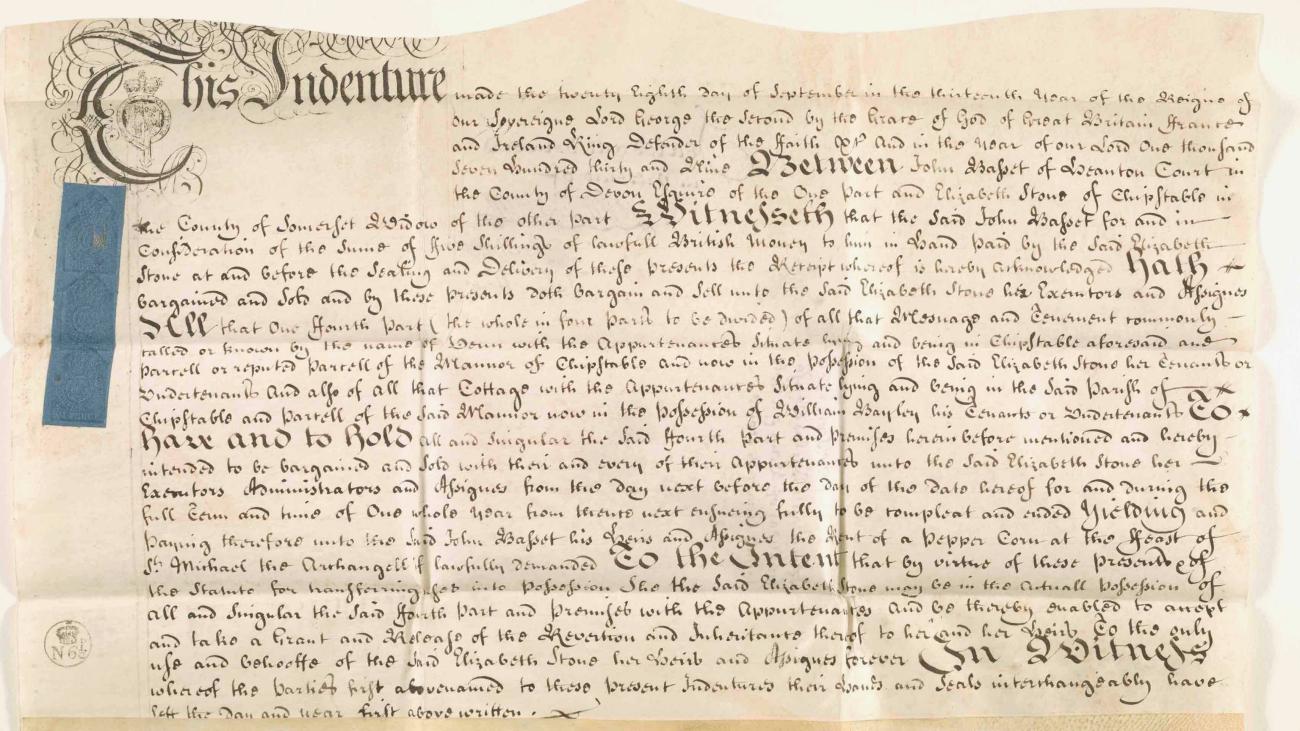 This Indenture made the twenty Eighth Day of September in the thirteenth Year of the Reigne of
our Sovereigne Lord George the Second by the Grace of God of Great Britain France
and Ireland King Defender of the Faith &c And in the Year of our Lord One thousand
Seven Hundred thirty and Nine Between John Basset of Heanton Court in
the County of Devon Esquire of the One Part and Elizabeth Stone of Chipstable in
the County of Somerset Widow of the other Part Witnesseth that the Said John Basset for and in
Consideration of the Sume of Five Shillings of lawfull British Money to him in Hand Paid by the Said Elizabeth
Stone at and before the Sealing and Delivery of these Presents the Receipt whereof is hereby Acknowledged Hath
bargained and Sold and by these Presents doth bargain and Sell unto the Said Elizabeth Stone her Executors and Assignes
All that One Fourth Part (the whole in four Parts to be divided) of all that Messuage and Tenement commonly
called or known by the name of Venn with the Appurtenances Situate lying and being in Chipstable aforesaid and
Parcell or reputed Parcell of the Mannor of Chipstable And now in the Possession of the Said Elizabeth Stone her Tenants or
Undertenants And also of All that Cottage with the Appurtenances Situate lying and being in the Said Parish of
Chipstable and Parcell of the Said Mannor now in the Possession of William Bayley his Tenants or Undertenants To
Have and to Hold all and Singular the Said Fourth Part and Premises hereinbefore mentioned and hereby
intended to be bargained and Sold with their and every of their Appurtenances unto the Said Elizabeth Stone her
Executors Administrators and Assignes from the Day next before the day of the Date hereof for and during the
full Term and time of One whole Year from thence next ensueing fully to be compleat and ended Yielding and
Paying therefore unto the Said John Basset his Heirs and Assignes the Rent of a Pepper Corn at the Feast of
St. Michael the Archangell if lawfully demanded To the Intent that by virtue of these Presents & of
the Statute for transferring uses into Possession She the Said Elizabeth Stone may be in the Actuall Possession of
All and Singular the Said Fourth Part and Premises with the Appurtenances And be thereby enabled to accept
and take a Grant and Release of the Revertion and Inheritance thereof to her and her Heirs To the only
use and behooffe of the Said Elizabeth Stone her Heirs and Assignes forever In Witness
whereof the Parties first abovenamed to these Present Indentures their Hands and Seals interchangeably have
sett the Day and year first above written.
N 64